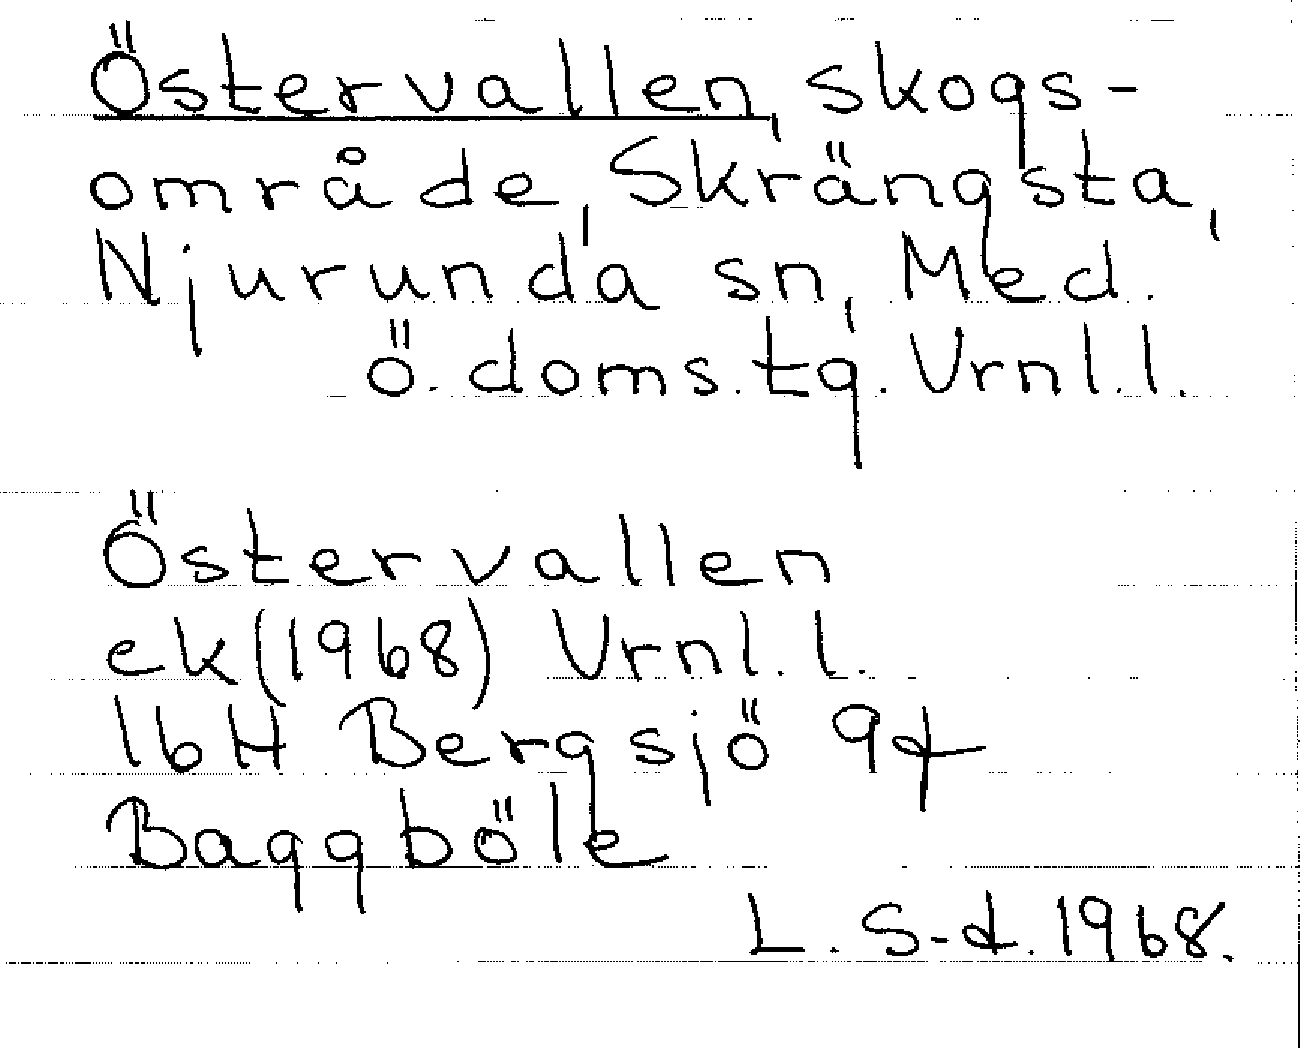 Östervallen, skogs-
område, Skrängsta,
Njurunda sn, Med.
ö. doms. tg. Vrnl.l.
Östervallen
ek(1968) Vrnl.l.
16H Bergsjö 9f
Baggböle
L. S-d. 1968.